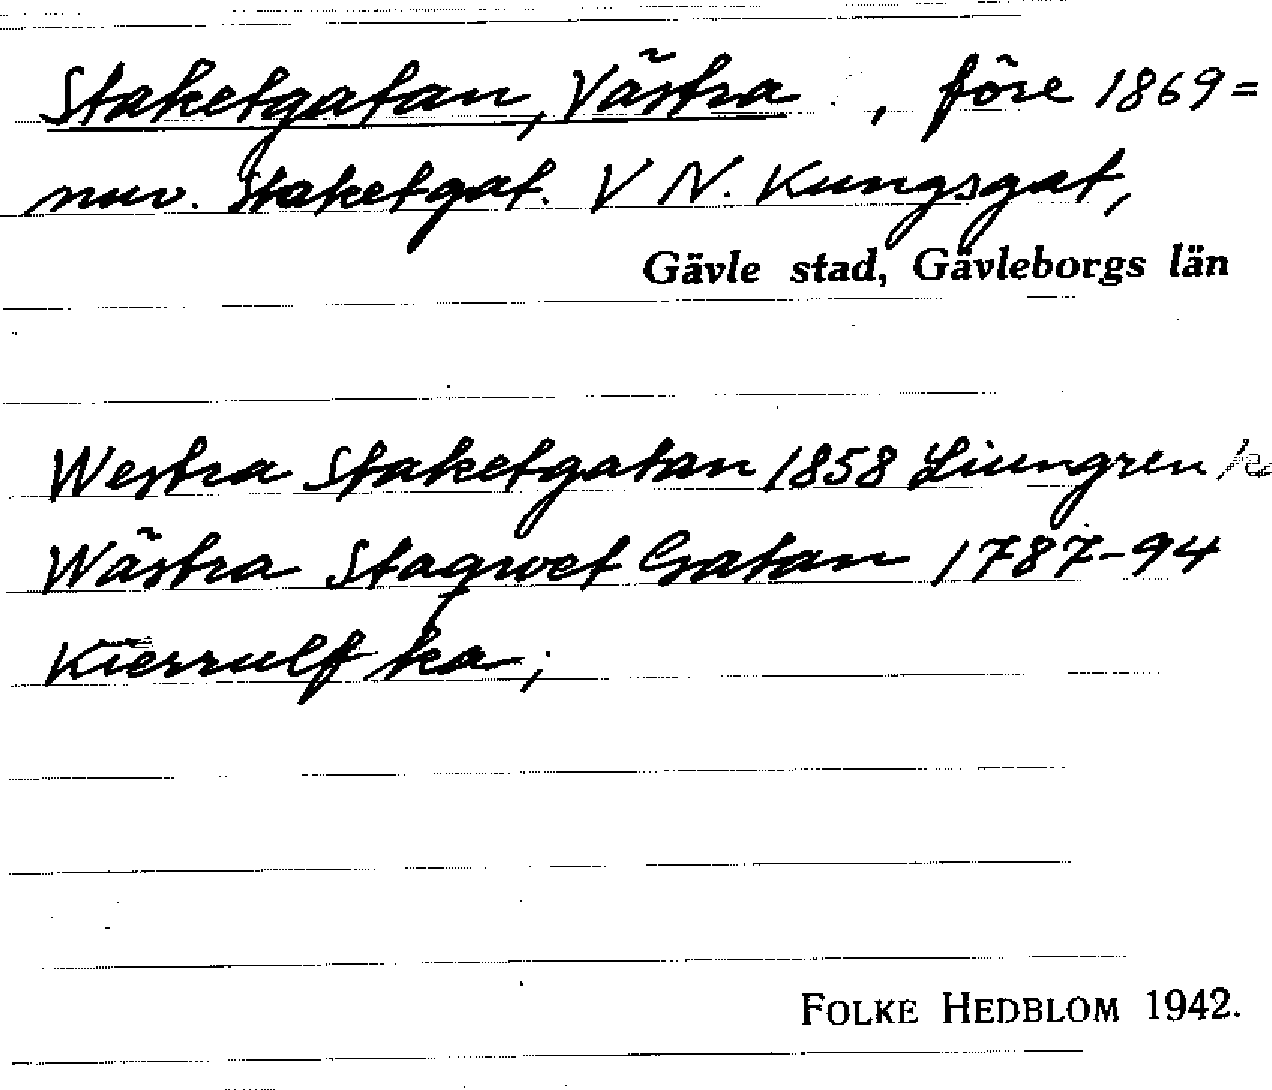 Staketgatan, Västra , före 1869 =
nuv. Staketgat. V N. Kungsgat,
Gävle stad, Gävleborgs län
Westra Staketgatan 1858 Liungren ka
Wästra Staqwet Gatan 1787-94
Kierrulf ka;
FOLKE HEDBLOM 1942.